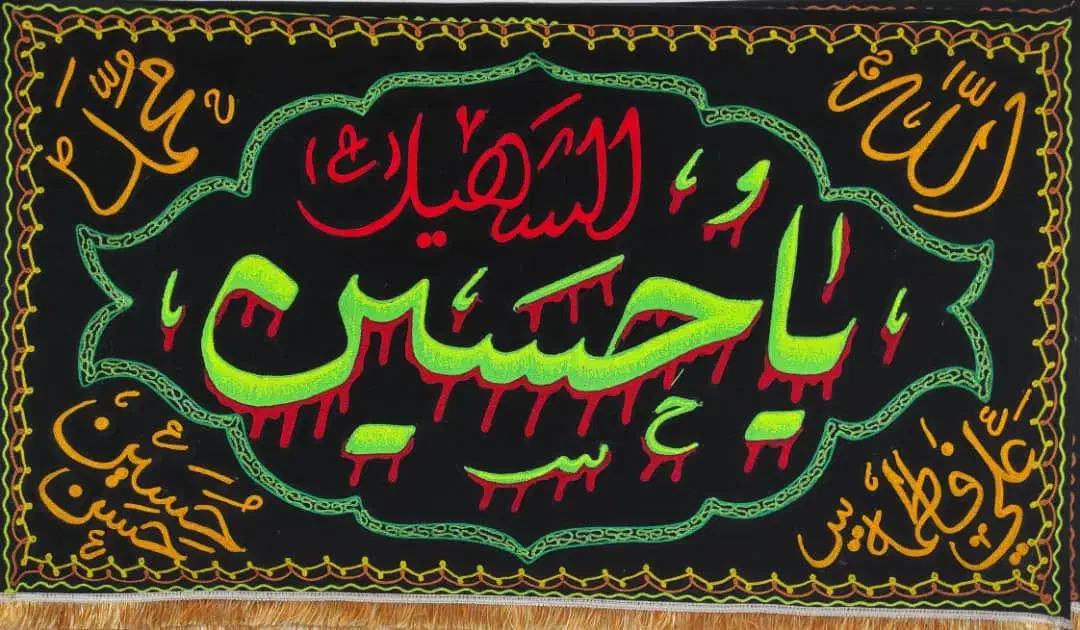 الله
محمد
الشهيد (ع)
يا حسين
علي
فاطمة
حسين
حسن